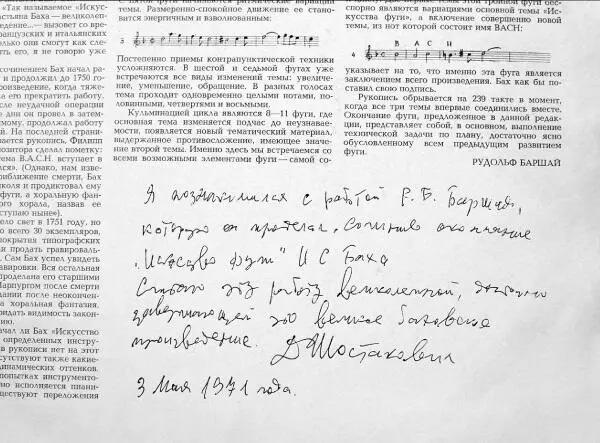 "Так называемое "Искус-
стьяна Баха — великолеп-
ие»... — вызовет со вре-
ранцузских и итальянских
олько они смогут как сле-
ить его, я не говорю уже
сочинением Бах начал ра-
и продолжил до 1750 го-
роизведение, когда тяже-
а его прекратить работу.
сле неудачной операции
е дни он провел в затем-
тому, продолжал работу
й. На последней страни-
вается рукопись, Филипп
озитора сделал пометку:
ема B.A.C.H. вступает в
лся». (Однако, нам изве-
риближение смерти, Бах
иколя и продиктовал ему
фуги, а хоральную фан-
ного хорала, назвав ее
ступаю ныне»).
ело свет в 1751 году, но
го всего 30 экземпляров,
окрытия типографских
и продать гравироваль-
Сам Бах успел увидеть
авировки. Вся остальная
роделана его старшими
Марпургом после смерти
дании после неокончен-
а хоральная фантазия,
ридать видимость закон-
нию.
начал ли Бах «Искусство
определенных инстру-
в рукописи нет на этот
сутствуют также какие-
динамических оттенков.
попытках инструменто-
но исполняется пиани-
ществуют переложения
темы. Размеренно-спокойное движение ее стано-
вится энергичным и взволнованным:
3
Постепенно приемы контрапунктической техники
усложняются. В шестой и седьмой фугах уже
встречаются все виды изменений темы: увеличе-
ние, уменьшение, обращение. В разных голосах
тема проходит одновременно целыми нотами, по-
ловинными, четвертями и восьмыми.
Кульминацией цикла являются 8—11 фуги, где
основная тема изменяется подчас до неузнавае-
мости, появляется новый тематический материал,
выдержанное противосложение, имеющее значе-
ние второй темы. Именно здесь мы встречаемся со
всеми возможными элементами фуги — самой со-
спорно являются вариациями основной темы «Ис-
кусства фуги», а включение совершенно новой
темы, из нот которой состоит имя BACH:
B A C H
4
указывает на то, что именно эта фуга является
заключением всего произведения. Бах как бы по-
ставил свою подпись.
Рукопись обрывается на 239 такте в момент,
когда все три темы впервые соединились вместе.
Окончание фуги, предложенное в данной редак-
ции, представляет собой, в основном, выполнение
технической задачи по плану, достаточно ясно
обусловленному всем предыдущим развитием
фуги.
РУДОЛЬФ БАРШАЙ
Я познакомился с работой Р. Б. Баршая,
которую он проделал, сочинив окончание
„Искусство фуги" И С Баха
Считаю эту работу великолепной, достойно
завершающей это великое баховское
произведение. Д Шостакович
3 Мая 1971 года.